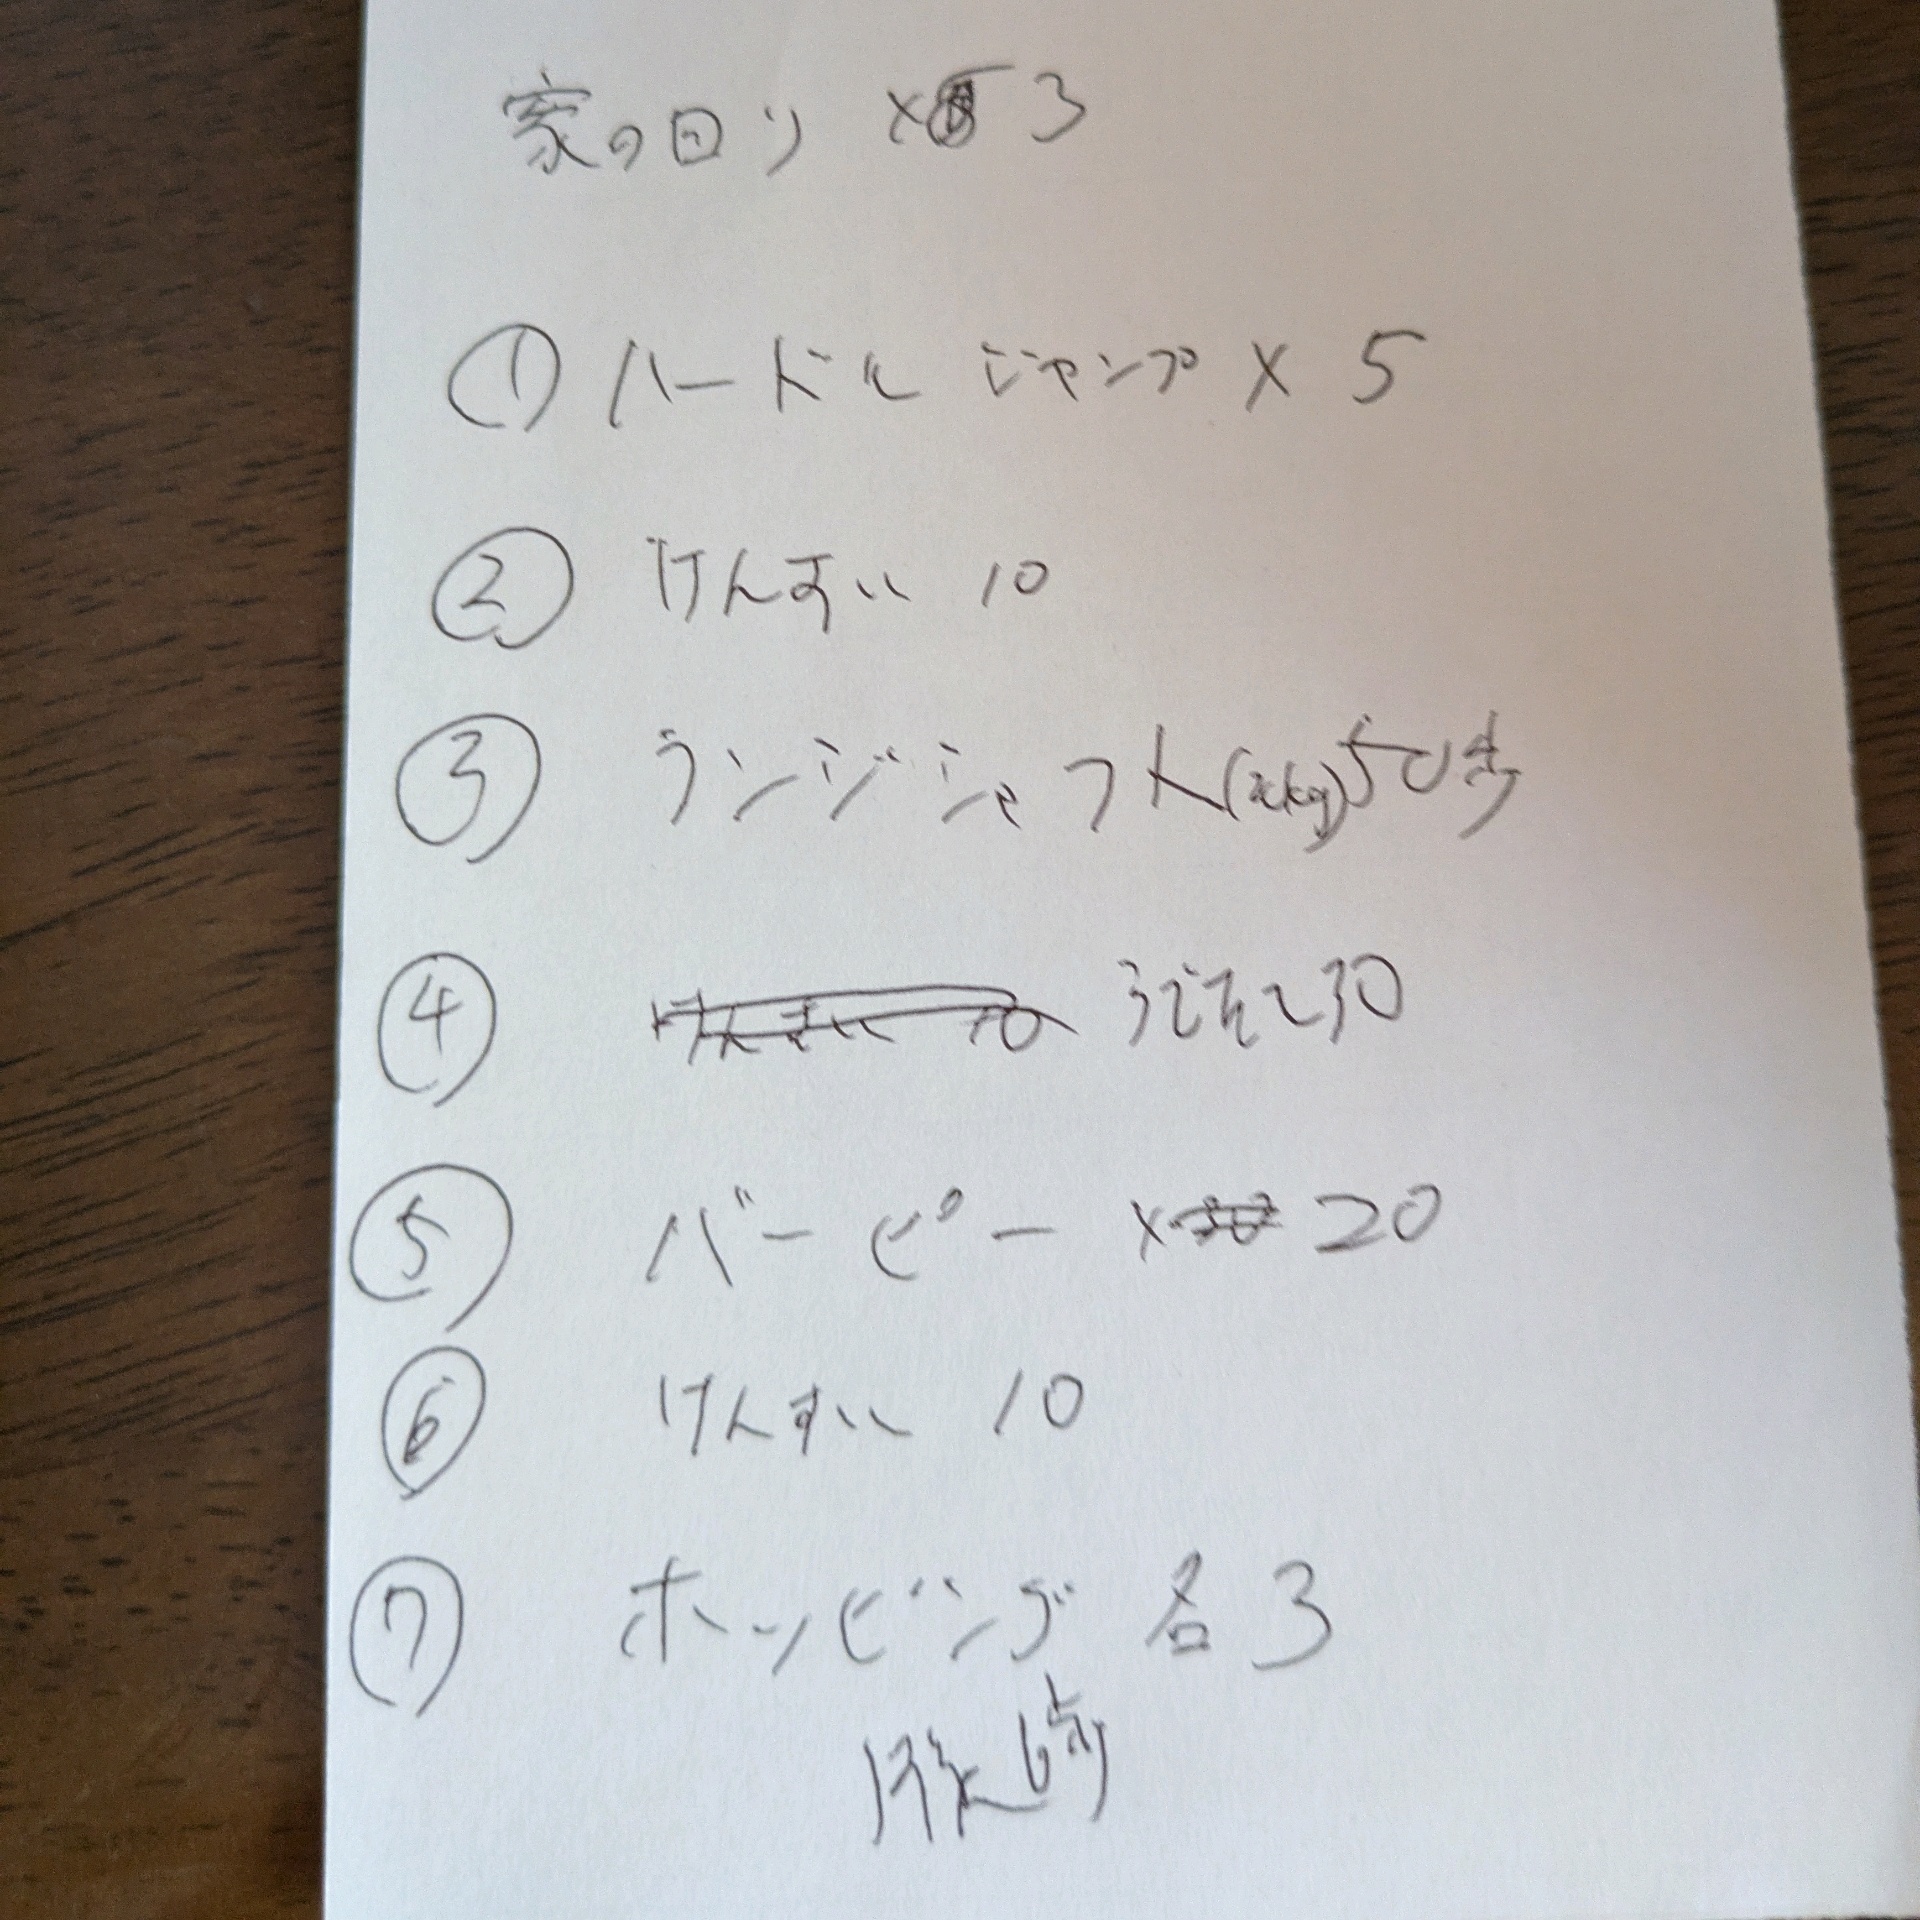 家の回り ×3
① ハードルジャンプ × 5
② けんすい 10
③ ランジシャフト(kg)50歩
④ うでたて30
⑤ バーピー × 20
⑥ けんすい 10
⑦ ホッピング 各3
6歩